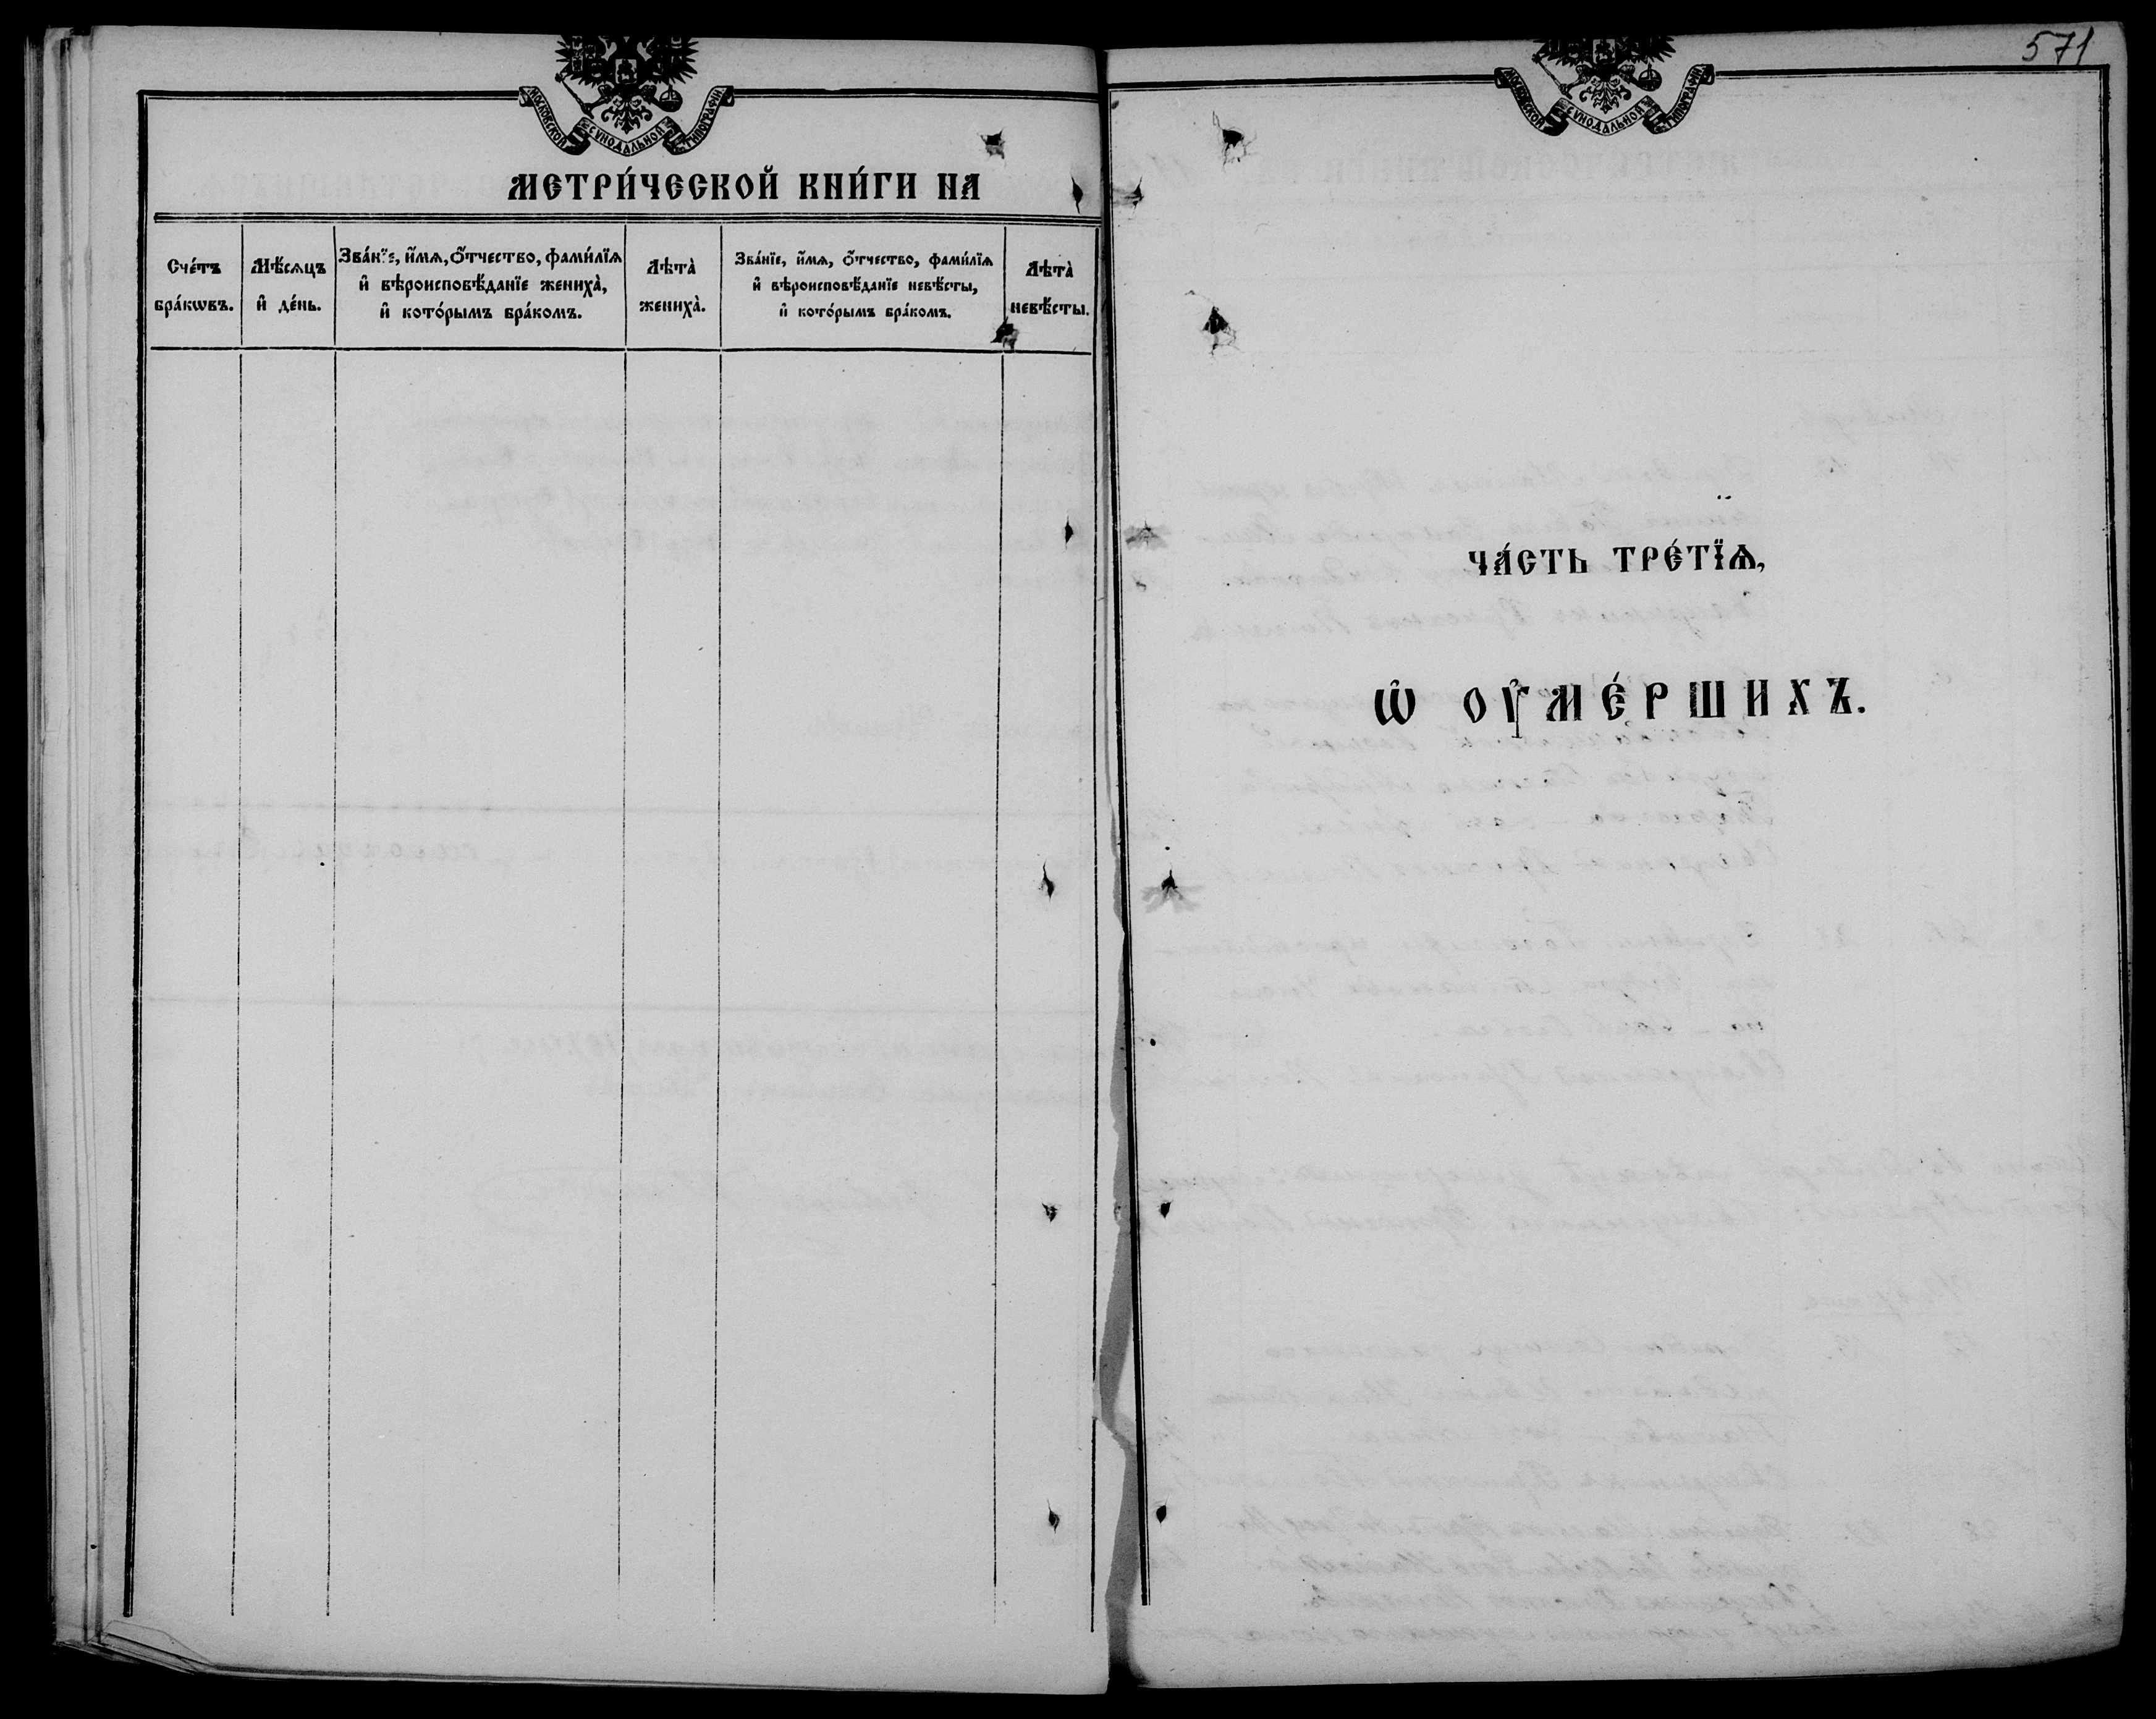 МОСКОВСКОЙ СѴНОДАЛЬНОЙ ТИПОГРАФІИ
МЕТРИ́ЧЕСКОЙ КНИ́ГИ НА
Сче́тъ
бра́кѡвъ.
Мѣ́сѧцъ
и҆ де́нь.
Зва́нїе, и҆́мѧ, ѻ҆́тчество, фами́лїѧ
и҆ вѣроисповѣ́данїе жениха̀,
и҆ кото́рымъ бра́комъ.
Лѣта̀
жениха̀.
Зва́нїе, и҆́мѧ, ѻ҆́тчество, фами́лїѧ
и҆ вѣроисповѣ́данїе невѣ́сты,
и҆ кото́рымъ бра́комъ.
Лѣта̀
невѣ́сты.
571
МОСКОВСКОЙ СѴНОДАЛЬНОЙ ТИПОГРАФІИ
ЧА́СТЬ ТРЕ́ТЇѦ,
Ѡ҆ ОУ҆МЕ́РШИХЪ.